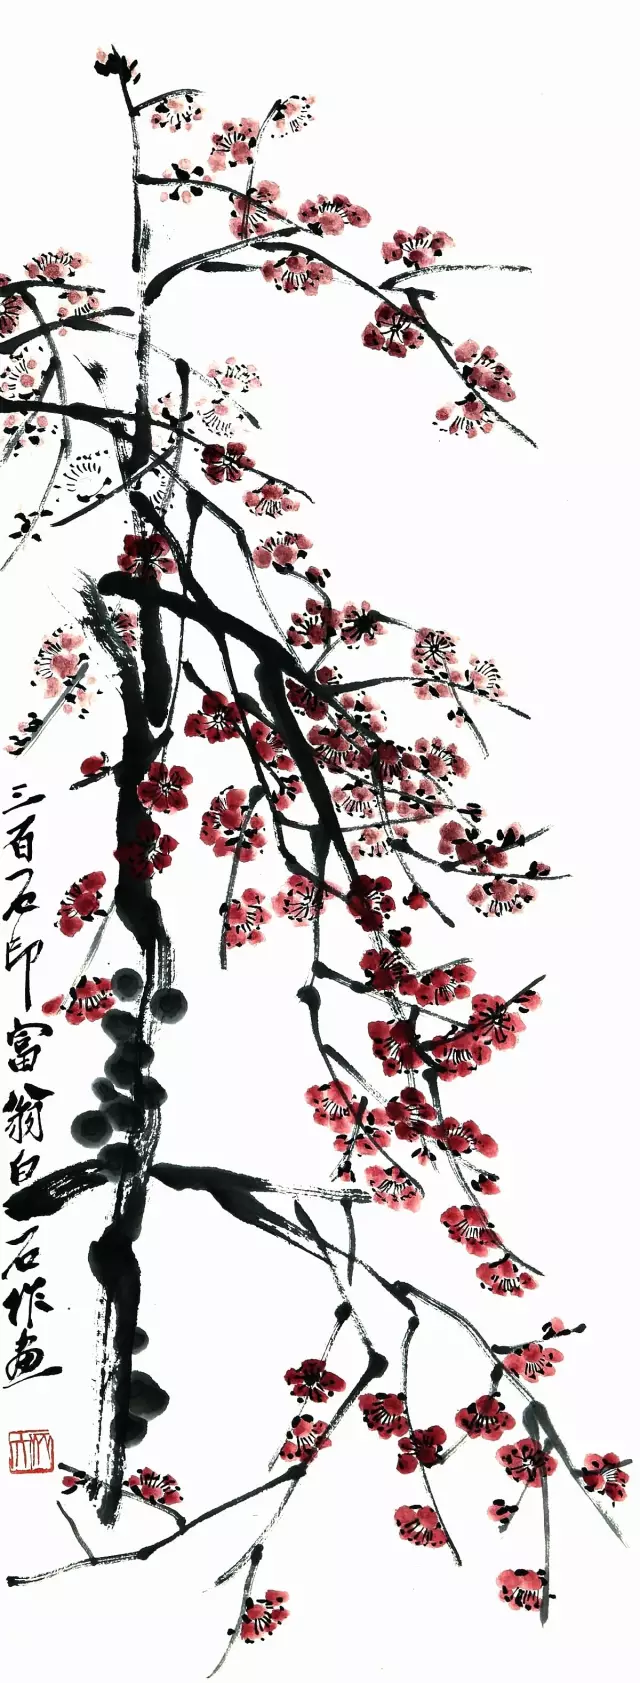 三百石印富翁白石作画
木人